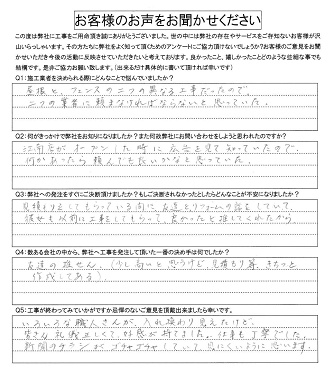 お客様のお声をお聞かせください
この度は弊社に工事をご用命頂き誠にありがとうございました。世の中には弊社の存在やサービスをご存知ないお客様が沢
山いらっしゃいます。その方たちに弊社をよく知って頂くためのアンケートにご協力頂けないでしょうか？お客様のご意見をお聞
かせいただき今後の活動に反映させていただきたいと考えております。良かったこと、嬉しかったことどのような些細な事でも
結構です。是非ご協力お願い致します。（出来るだけ具体的に書いて頂ければ幸いです）
Q1：施工業者を決められる際にどんなことで悩んでいましたか？
屋根と、フェンスの二つの異なる工事だったので、
二つの業者に頼まなければならないと思っていた。
Q2：何がきっかけで弊社をお知りになりましたか？また何故弊社にお問い合わせをしようと思われたのですか？
江南店がオープンした時に広告を見て知っていたので、
何かあったら頼んでも良いかなと思っていた。
Q3：弊社への発注をすぐにご決断頂けましたか？もしご決断されなかったとしたらどんなことが不安になりましたか？
見積もりをしてもらっている間に、友達とリフォームの話をしていて、
彼女も以前に工事をしてもらって、良かったと推してくれたから
Q4：数ある会社の中から、弊社へ工事を発注して頂いた一番の決め手は何でしたか？
友達の推せん。（少し高いと思うけど、見積もり等、きちっと
作成してある）
Q5：工事が終わってみていかがですか忌憚のないご意見を頂戴出来ましたら幸いです。
いろいろな職人さんが、入れ替わり見えたけど、
皆さん礼儀正しくて好感が持てました。仕事も丁寧でした。
新聞のチラシがゴチャゴチャしていて見にくいように思います。